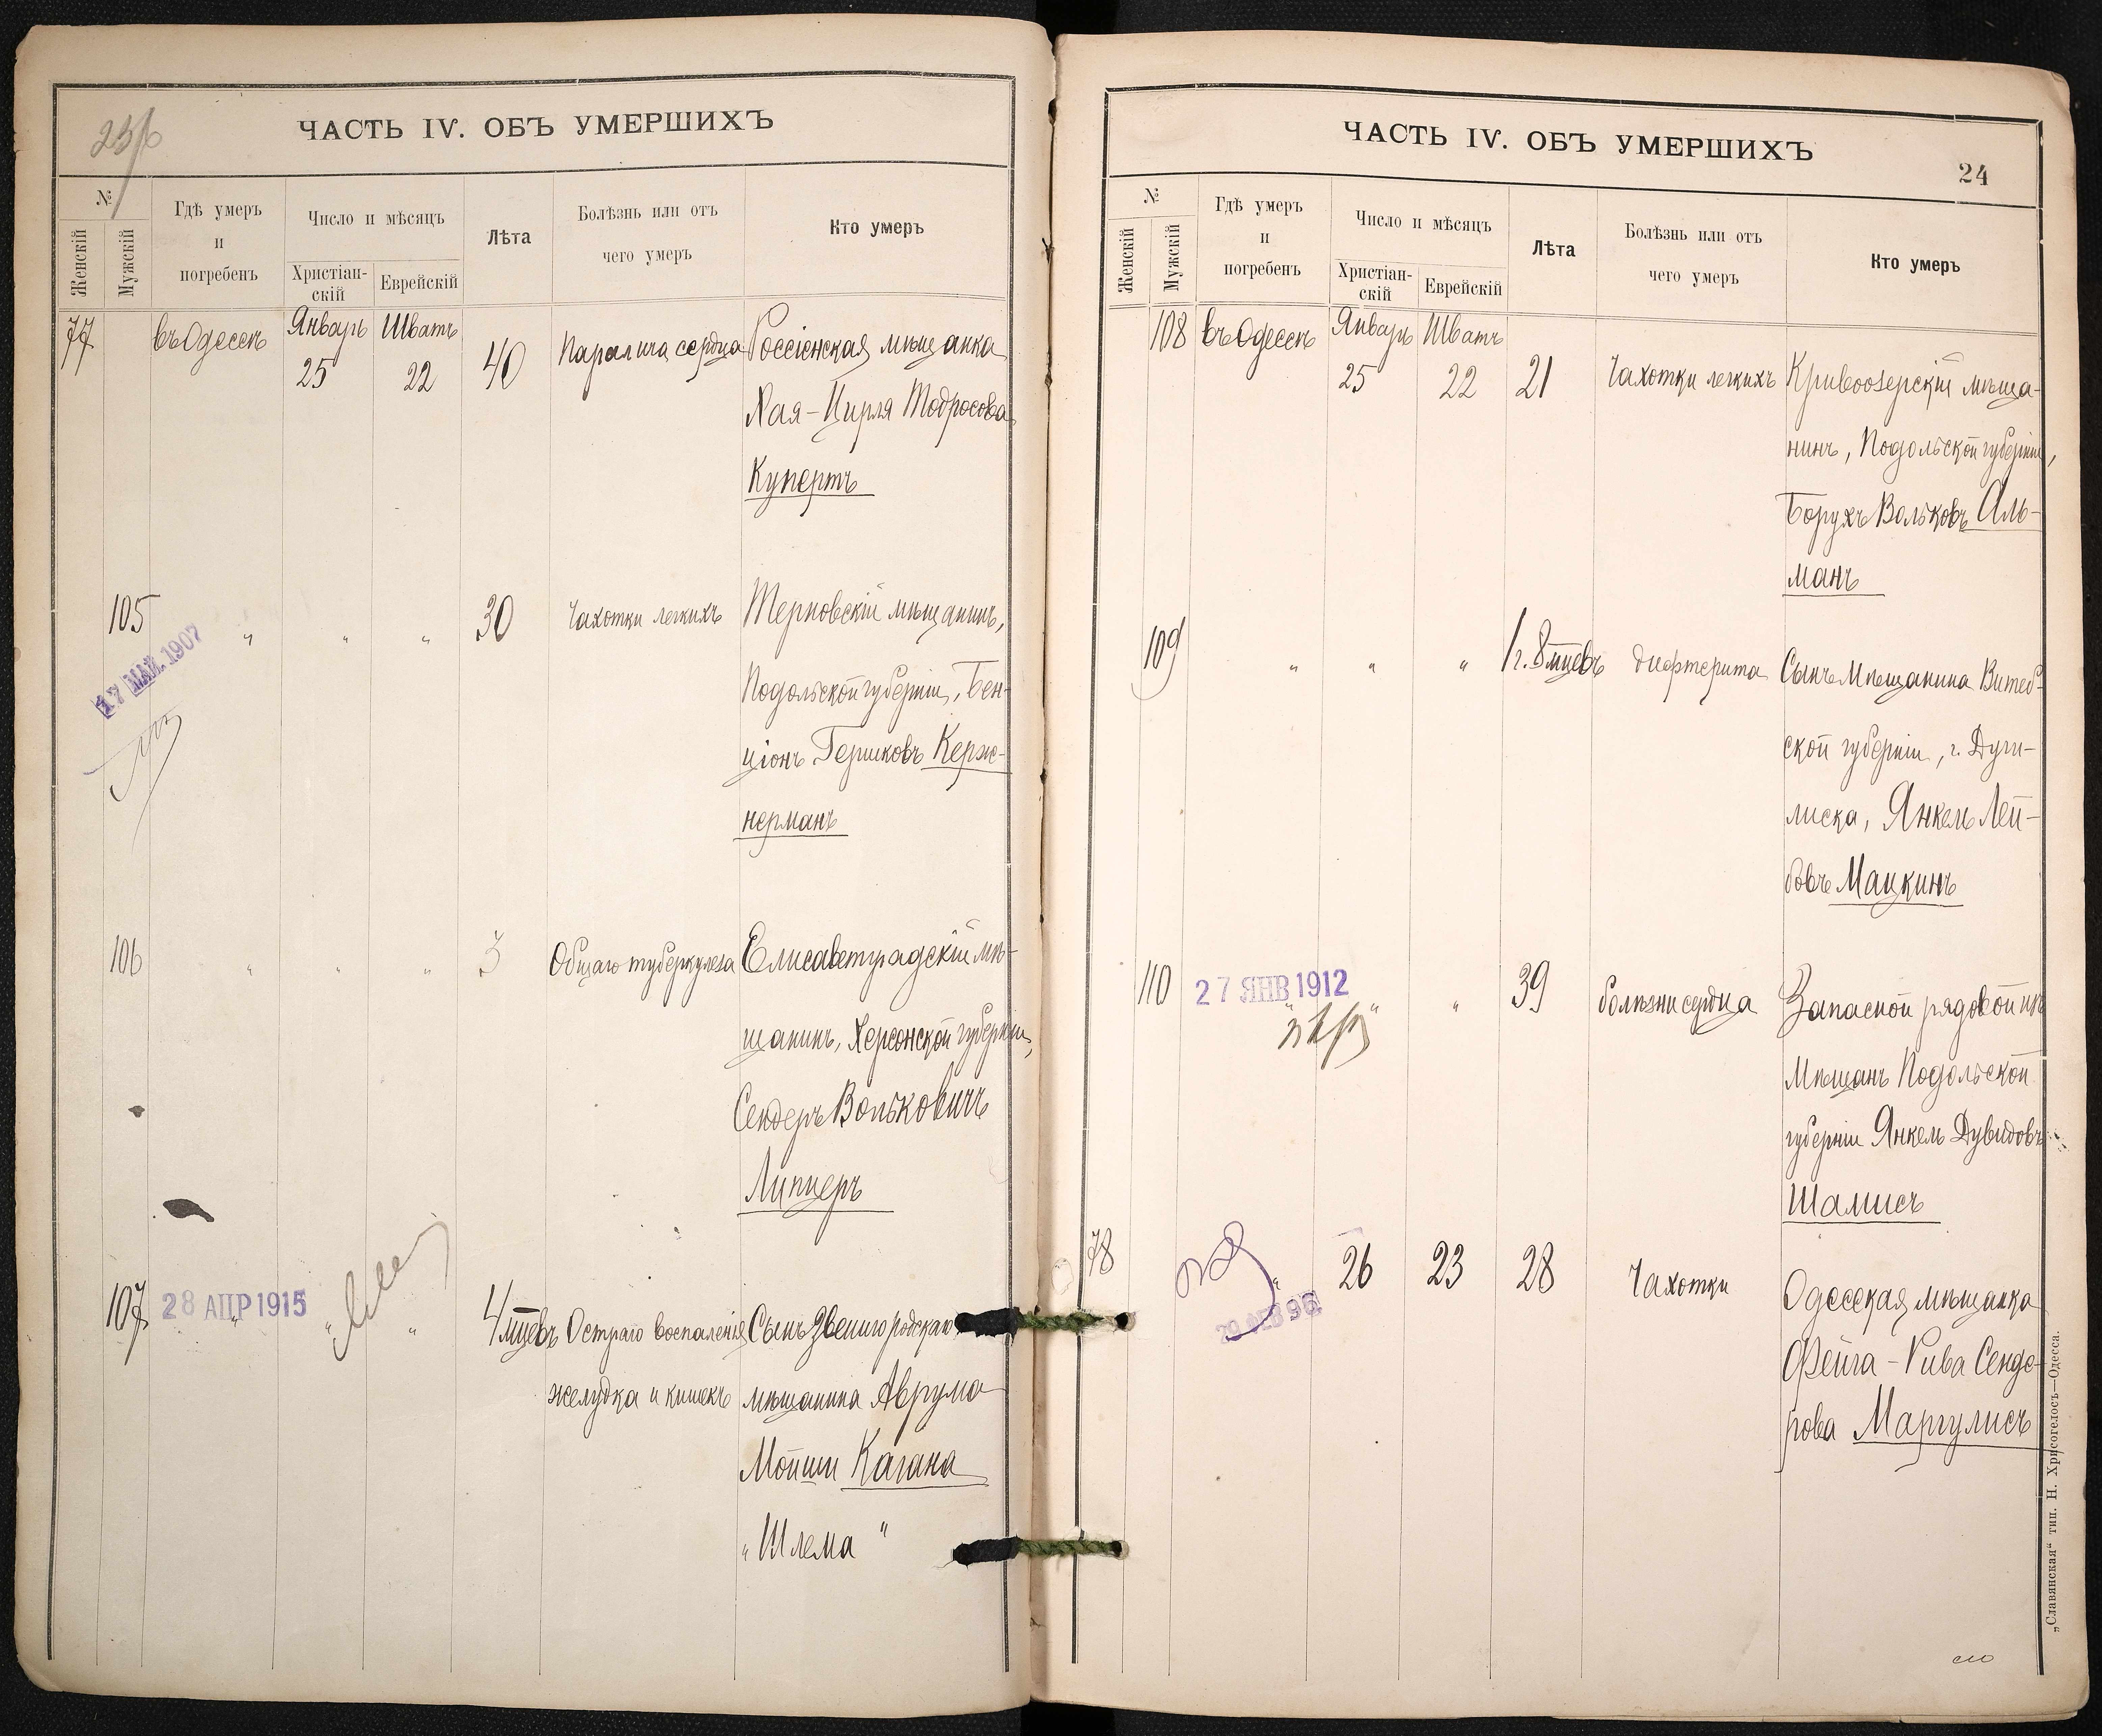 ЧАСТЬ IV. ОБЪ УМЕРШИХЪ
№
Женскій
Мужскій
Гдѣ умеръ
и
погребенъ
Число и мѣсяцъ
Христіан-
скій
Еврейскій
Лѣта
Болѣзнь или отъ
чего умеръ
Кто умеръ
77 въ Одессѣ Январь 25 Шватъ 22 40 Паралича сердца Россіенская мѣщанка
Хая-Цирля Тодросова
Купертъ
105 „ „ „ 30 Чахотки легкихъ Терновскій мѣщанинъ,
17 МАЙ. 1907
Подольской губерніи, Бен-
ціонъ Гершковъ Керж-
нерманъ
106 „ „ „ 3 Общаго туберкулеза Елисаветградскій мѣ-
щанинъ, Херсонской губерніи,
Сендеръ Вольковичъ
Липцеръ
107 28 АПР 1915 „ „ „ 4 мцевъ Остраго воспаленія Сынъ Звенигородскаго
желудка и кишекъ мѣщанина Аврума
Мойши Кагана
„Шлема“
ЧАСТЬ IV. ОБЪ УМЕРШИХЪ
24
№
Женскій
Мужскій
Гдѣ умеръ
и
погребенъ
Число и мѣсяцъ
Христіан-
скій
Еврейскій
Лѣта
Болѣзнь или отъ
чего умеръ
Кто умеръ
108 въ Одессѣ Январь 25 Шватъ 22 21 Чахотки легкихъ Кривоозерскій мѣща-
нинъ, Подольской губерніи,
Борухъ Вольковъ Аль-
манъ
109 „ „ „ 1 г. 8 мцевъ дифтерита Сынъ Мѣщанина Витеб-
ской губерніи, г. Думи-
лиска, Янкель Лей-
бовъ Мацкинъ
110 27 ЯНВ 1912 „ „ „ 39 болѣзни сердца Запасной рядовой изъ
Мѣщанъ Подольской
губерніи Янкель Дувидовъ
Шалисъ
78 „ 26 23 28 Чахотки Одесская мѣщанка
Фейга-Рива Сенде-
рова Маргулисъ
„Славянская“ тип. Н. Хрисогелосъ—Одесса.